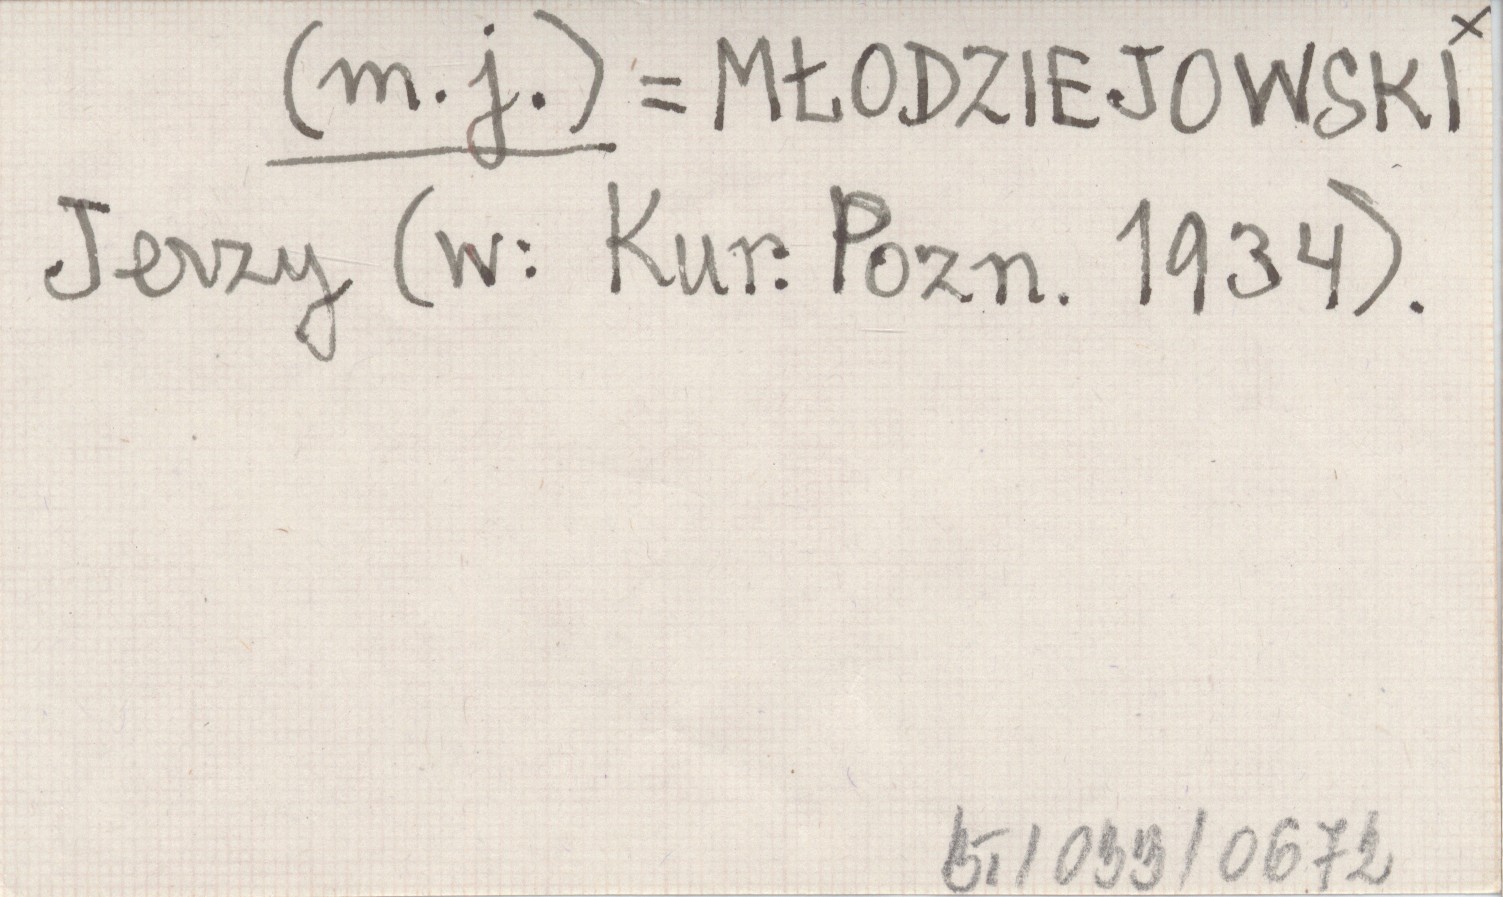 (m.j.) = MŁODZIEJOWSKI x
Jerzy (w: Kur. Pozn. 1934).
5,/033/0672